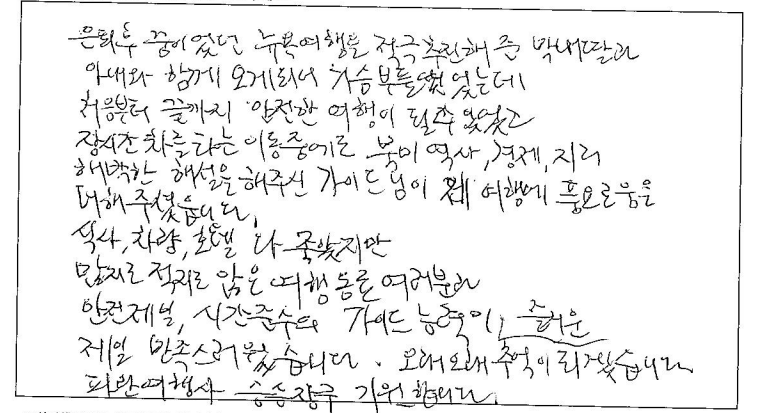 은퇴후 꿈이었던 뉴욕여행을 적극추진해 준 막내딸과
아내와 함께 오게되어 가슴부풀었었는데
처음부터 끝까지 안전한 여행이 될수 있었고
장시간 차를 타는 이동중에도 북미 역사, 경제, 지리
해박한 해설을 해주신 가이드님이 여행에 풍요로움을
더해주셨습니다.
식사, 차량, 호텔 다 좋았지만
많지도 적지도 않은 여행 동료 여러분과
안전제일, 시간준수의 가이드 능력이, 즐거운
제일 만족스러웠습니다. 오래오래 추억이 되겠습니다.
파란여행사 승승장구 기원합니다.